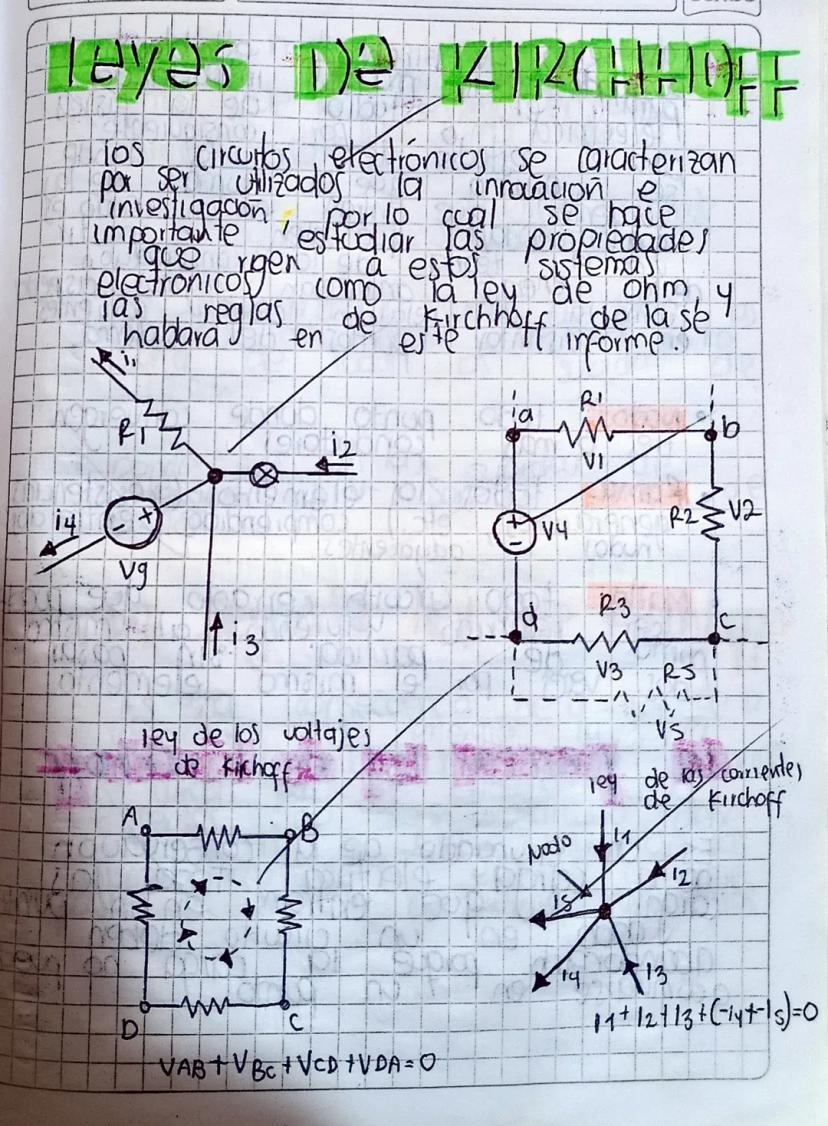 leyes De KIRCHHOFF
los circuitos electrónicos se caracterizan
por ser utilizados la innovación e
investigación, por lo cual se hace
importante estudiar las propiedades
que rgen a estos sistemas
electrónicos como la ley de ohm, y
las reglas de Kirchhoff de la se
habara en este informe.
i1
R1
i2
i4
- +
Vg
i3
a R1 b
V1
+
-
V4
R2 V2
d R3 c
V3 R5
V5
ley de los voltajes
de Kirchoff
A B
D C
VAB + VBC + VCD + VDA = 0
ley de las corrientes
de Kirchoff
Nodo
I1
I2
I5
I4
I3
I1 + I2 + I3 + (-I4 + -I5) = 0